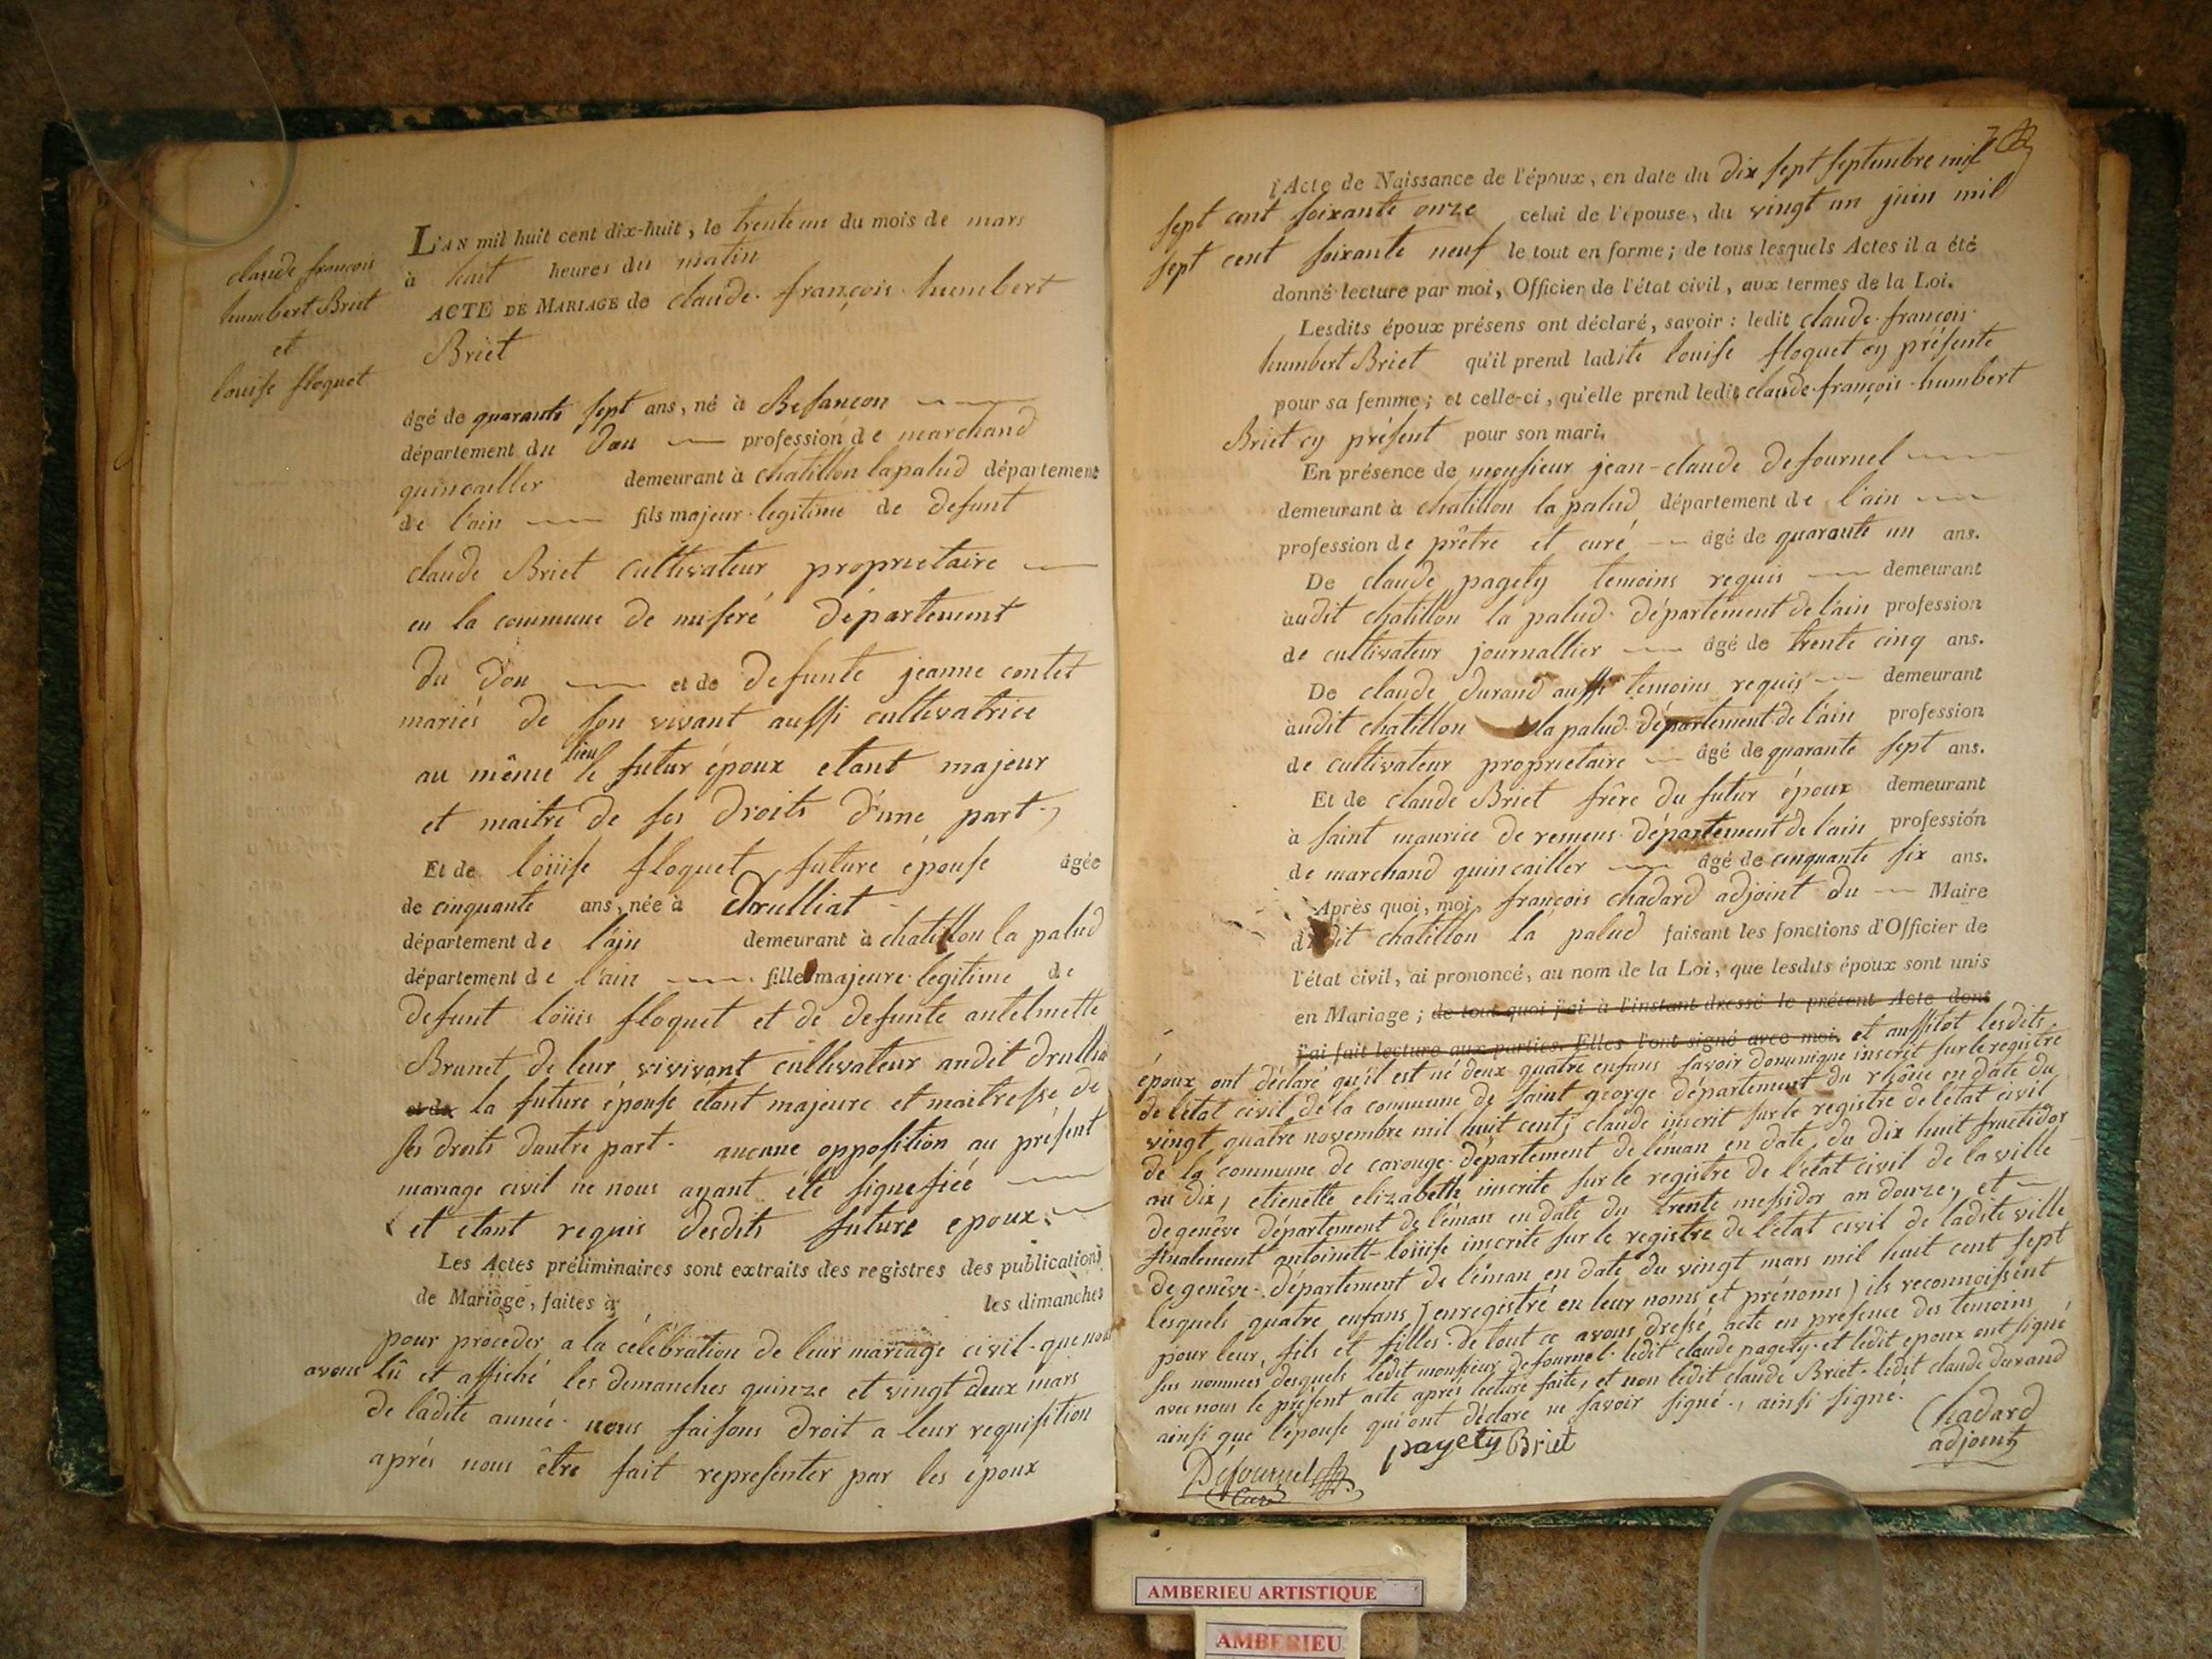 claude françois
humbert Briet
et
louise floquet
L'AN mil huit cent dix-huit, le trente un du mois de mars
à huit heures du matin
ACTE DE MARIAGE de claude. françois. humbert
Briet
âgé de quarante sept ans, né à Besançon
département du Dou profession de marchand
quincailler demeurant à chatillon lapalud département
de l'ain fils majeur legitime de defunt
claude Briet cultivateur proprietaire
en la commune de miseré département
du Dou et de defunte jeanne contet
mariés de son vivant aussi cultivatrice
lieu
au même le futur époux etant majeur
et maitre de ses droits d'une part.
Et de loüise floquet future épouse âgée
de cinquante ans, née à Drulliat
département de l'ain demeurant à chatillon la palud
département de l'ain fille majeure legitime de
defunt loüis floquet et de defunte antelmette
Brunet de leur vivivant cultivateur audit drullia
et de la future épouse étant majeure et maitresse de
ses droits dautre part. aucune opposition au présent
mariage civil ne nous ayant été signefiée
et etant requis desdits future epoux.
Les Actes préliminaires sont extraits des registres des publications
de Mariage, faites à les dimanches
pour proceder a la célébration de leur mariage civil. que nous
avons lû et affiché les demanches quinze et vingt deux mars
de ladite année. nous faisons droit a leur requisition
aprés nous être fait representer par les époux
l'Acte de Naissance de l'époux, en date du dix sept septembre mil
sept cent soixante onze celui de l'épouse, du vingt un juin mil
sept cent soixante neuf le tout en forme; de tous lesquels Actes il a été
donné lecture par moi, Officier de l'état civil, aux termes de la Loi.
Lesdits époux présens ont déclaré, savoir: ledit claude. françois.
humbert Briet qu'il prend ladite louise floquet cy présente
pour sa femme; et celle-ci, qu'elle prend ledit claude. françois. humbert
Briet cy présent pour son mari.
En présence de monsieur jean-claude Defournel
demeurant à chatillon la palud département de l'ain
profession de prêtre et curé âgé de quarante un ans.
De claude pagety temoins requis demeurant
audit chatillon la palud. département de l'ain profession
de cultivateur journallier âgé de trente cinq ans.
De claude durand aussi temoins requis demeurant
audit chatillon la palud. département de l'ain profession
de cultivateur proprietaire âgé de quarante sept ans.
Et de claude Briet frère du futur époux demeurant
à saint maurice de remens. département de l'ain profession
de marchand quincailler âgé de cinquante six ans.
Après quoi, moi, françois chadard adjoint du Maire
dudit chatillon la palud faisant les fonctions d'Officier de
l'état civil, ai prononcé, au nom de la Loi, que lesdits époux sont unis
en Mariage; de tout quoi j'ai à l'instant dressé le présent Acte dont
j'ai fait lecture aux parties. Elles l'ont signé avec moi. et aussitot lesdits
époux ont déclaré qu'il est né deux quatre enfans savoir dominique inscrit sur le registre
de l'etat civil de la commune de saint george département du rhône en date du
vingt quatre novembre mil huit cent; claude inscrit sur le registre de l'etat civil
de la commune de carouge. département de léman en date du dix huit fructidor
an dix, etienette elizabeth inscrite sur le registre de l'etat civil de la ville
de genêve département de léman en date du trente messidor an douze, et
finalement antoinett-loüise inscrite sur le registre de l'etat civil de ladite ville
de genêve. département de léman en date du vingt mars mil huit cent sept
lesquels quatre enfans (enregistré en leur noms et prénoms) ils reconnoissent
pour leur fils et filles. de tout ce avons dressé acte en présence des temoins
sus nommés desquels ledit monsieur defournel. ledit claude pagety. et ledit epoux ont signé
avec nous le présent acte aprés lecture faite, et non ledit claude Briet. ledit claude durand
ainsi que l'épouse qui ont déclare ne savoir signé., ainsi signé.
Defournel pagety Briet Chadard
Curé adjoint
AMBERIEU ARTISTIQUE
AMBERIEU